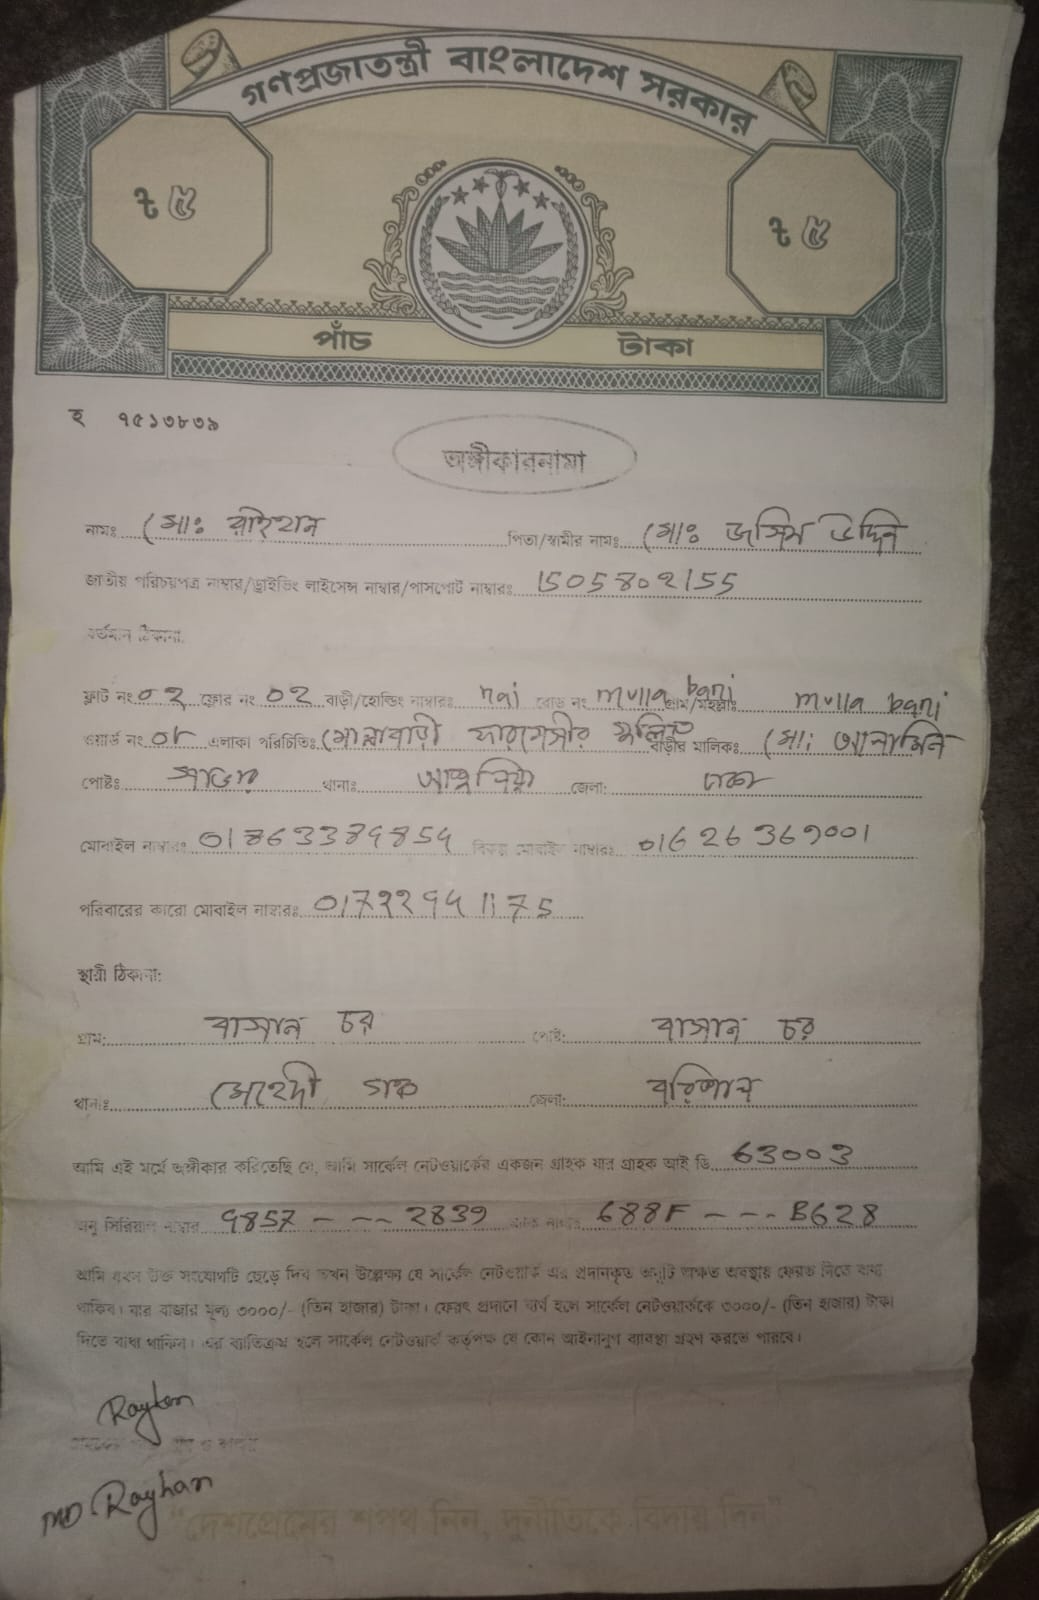 গণপ্রজাতন্ত্রী বাংলাদেশ সরকার
৳ ৫ ৳ ৫
পাঁচ টাকা
হ ৭৫১৩৮৩৯
অঙ্গীকারনামা
নামঃ মোঃ রাইহান পিতা/স্বামীর নামঃ মোঃ জসিম উদ্দিন
জাতীয় পরিচয়পত্র নাম্বার/ড্রাইভিং লাইসেন্স নাম্বার/পাসপোর্ট নাম্বারঃ 1505802155
বর্তমান ঠিকানা:
ফ্লাট নং ০২ ফ্লোর নং ০২ বাড়ী/হোল্ডিং নাম্বারঃ nai রোড নং mulla bari গ্রাম/মহল্লাঃ mulla bari
ওয়ার্ড নং এলাকা পরিচিতিঃ মোল্লাবাড়ী বাড়ীর মালিকঃ মো: আলামিন
পোষ্টঃ সাভার থানাঃ আশুলিয়া জেলা: ঢাকা
মোবাইল নাম্বারঃ বিকল্প মোবাইল নাম্বারঃ 01626369001
পরিবারের কারো মোবাইল নাম্বারঃ
স্থায়ী ঠিকানা:
গ্রাম: বাসান চর পোষ্ট: বাসান চর
থানাঃ মেহেদী গঞ্জ জেলা: বরিশাল
আমি এই মর্মে অঙ্গীকার করিতেছি যে, আমি সার্কেল নেটওয়ার্কের একজন গ্রাহক যার গ্রাহক আই ডি 63003
অনু সিরিয়াল নাম্বার 9857 - -- 2839 688F - -- B628
আমি যখন উক্ত সংযোগটি ছেড়ে দিব তখন উল্লেক্ষ্য যে সার্কেল নেটওয়ার্ক এর প্রদানকৃত অনুটি অক্ষত অবস্থায় ফেরত দিতে বাধ্য
থাকিব। যার বাজার মূল্য ৩০০০/- (তিন হাজার) টাকা। ফেরৎ প্রদানে ব্যর্থ হলে সার্কেল নেটওয়ার্ককে ৩০০০/- (তিন হাজার) টাকা
দিতে বাধ্য থাকিব। এর ব্যতিক্রম হলে সার্কেল নেটওয়ার্ক কর্তৃপক্ষ যে কোন আইনানুগ ব্যবস্থা গ্রহণ করতে পারবে।
Rayhan
MD Rayhan
"দেশপ্রেমের শপথ নিন, দুর্নীতিকে বিদায় দিন"